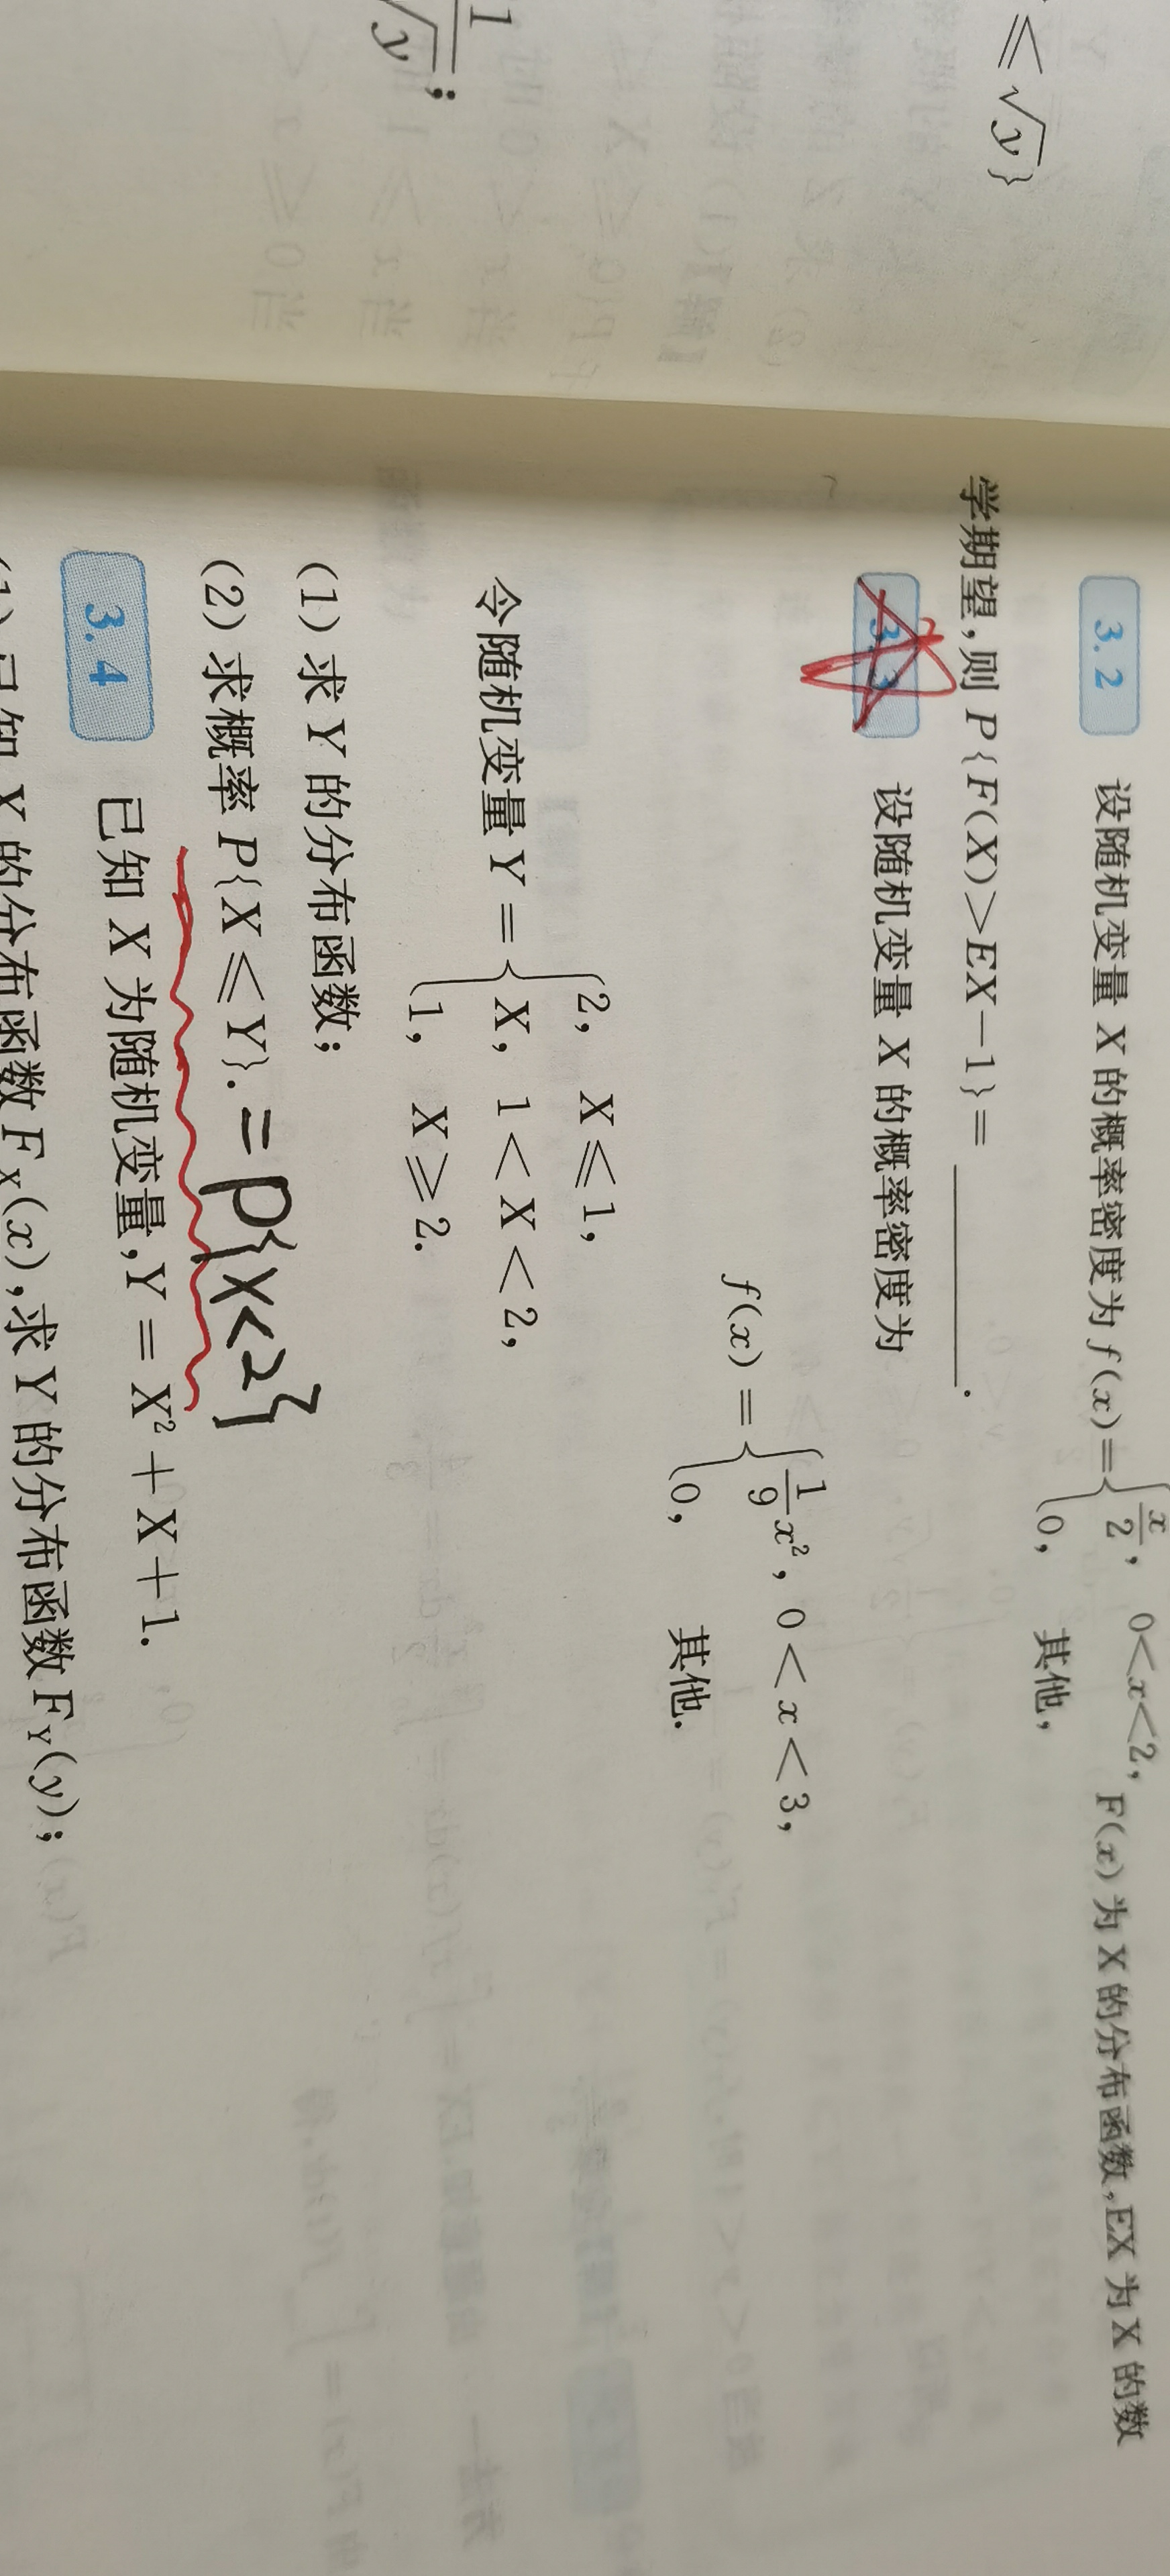 ≤√y}
1/√y;
3.2 设随机变量 X 的概率密度为 f(x)={x/2, 0<x<2, 0, 其他, F(x)为 X 的分布函数,EX 为 X 的数
学期望,则 P{F(X)>EX−1}=________.
3.3 设随机变量 X 的概率密度为
f(x)={1/9 x², 0<x<3,
0, 其他.
令随机变量 Y={2, X≤1,
X, 1<X<2,
1, X≥2.
(1) 求 Y 的分布函数;
(2) 求概率 P{X≤Y}. =P{X<2}
3.4 已知 X 为随机变量,Y=X²+X+1.
(1) 已知 X 的分布函数 F_X(x),求 Y 的分布函数 F_Y(y);